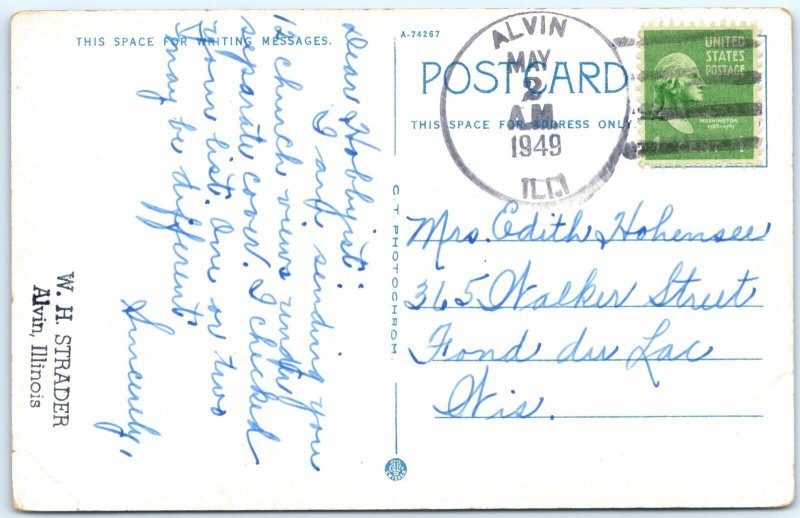 THIS SPACE FOR WRITING MESSAGES.
Dear Hobbyist:
I am sending you
12 church views under
separate cover. I checked
your list. One or two
may be different.
Sincerely,
W. H. STRADER
Alvin, Illinois
A-74267
POST CARD
THIS SPACE FOR ADDRESS ONLY.
C. T. PHOTOCHROM
ALVIN
MAY
2
A.M.
1949
ILL.
UNITED
STATES
POSTAGE
WASHINGTON
Mrs. Edith Hohensee
365 Walker Street
Fond du Lac
Wis.